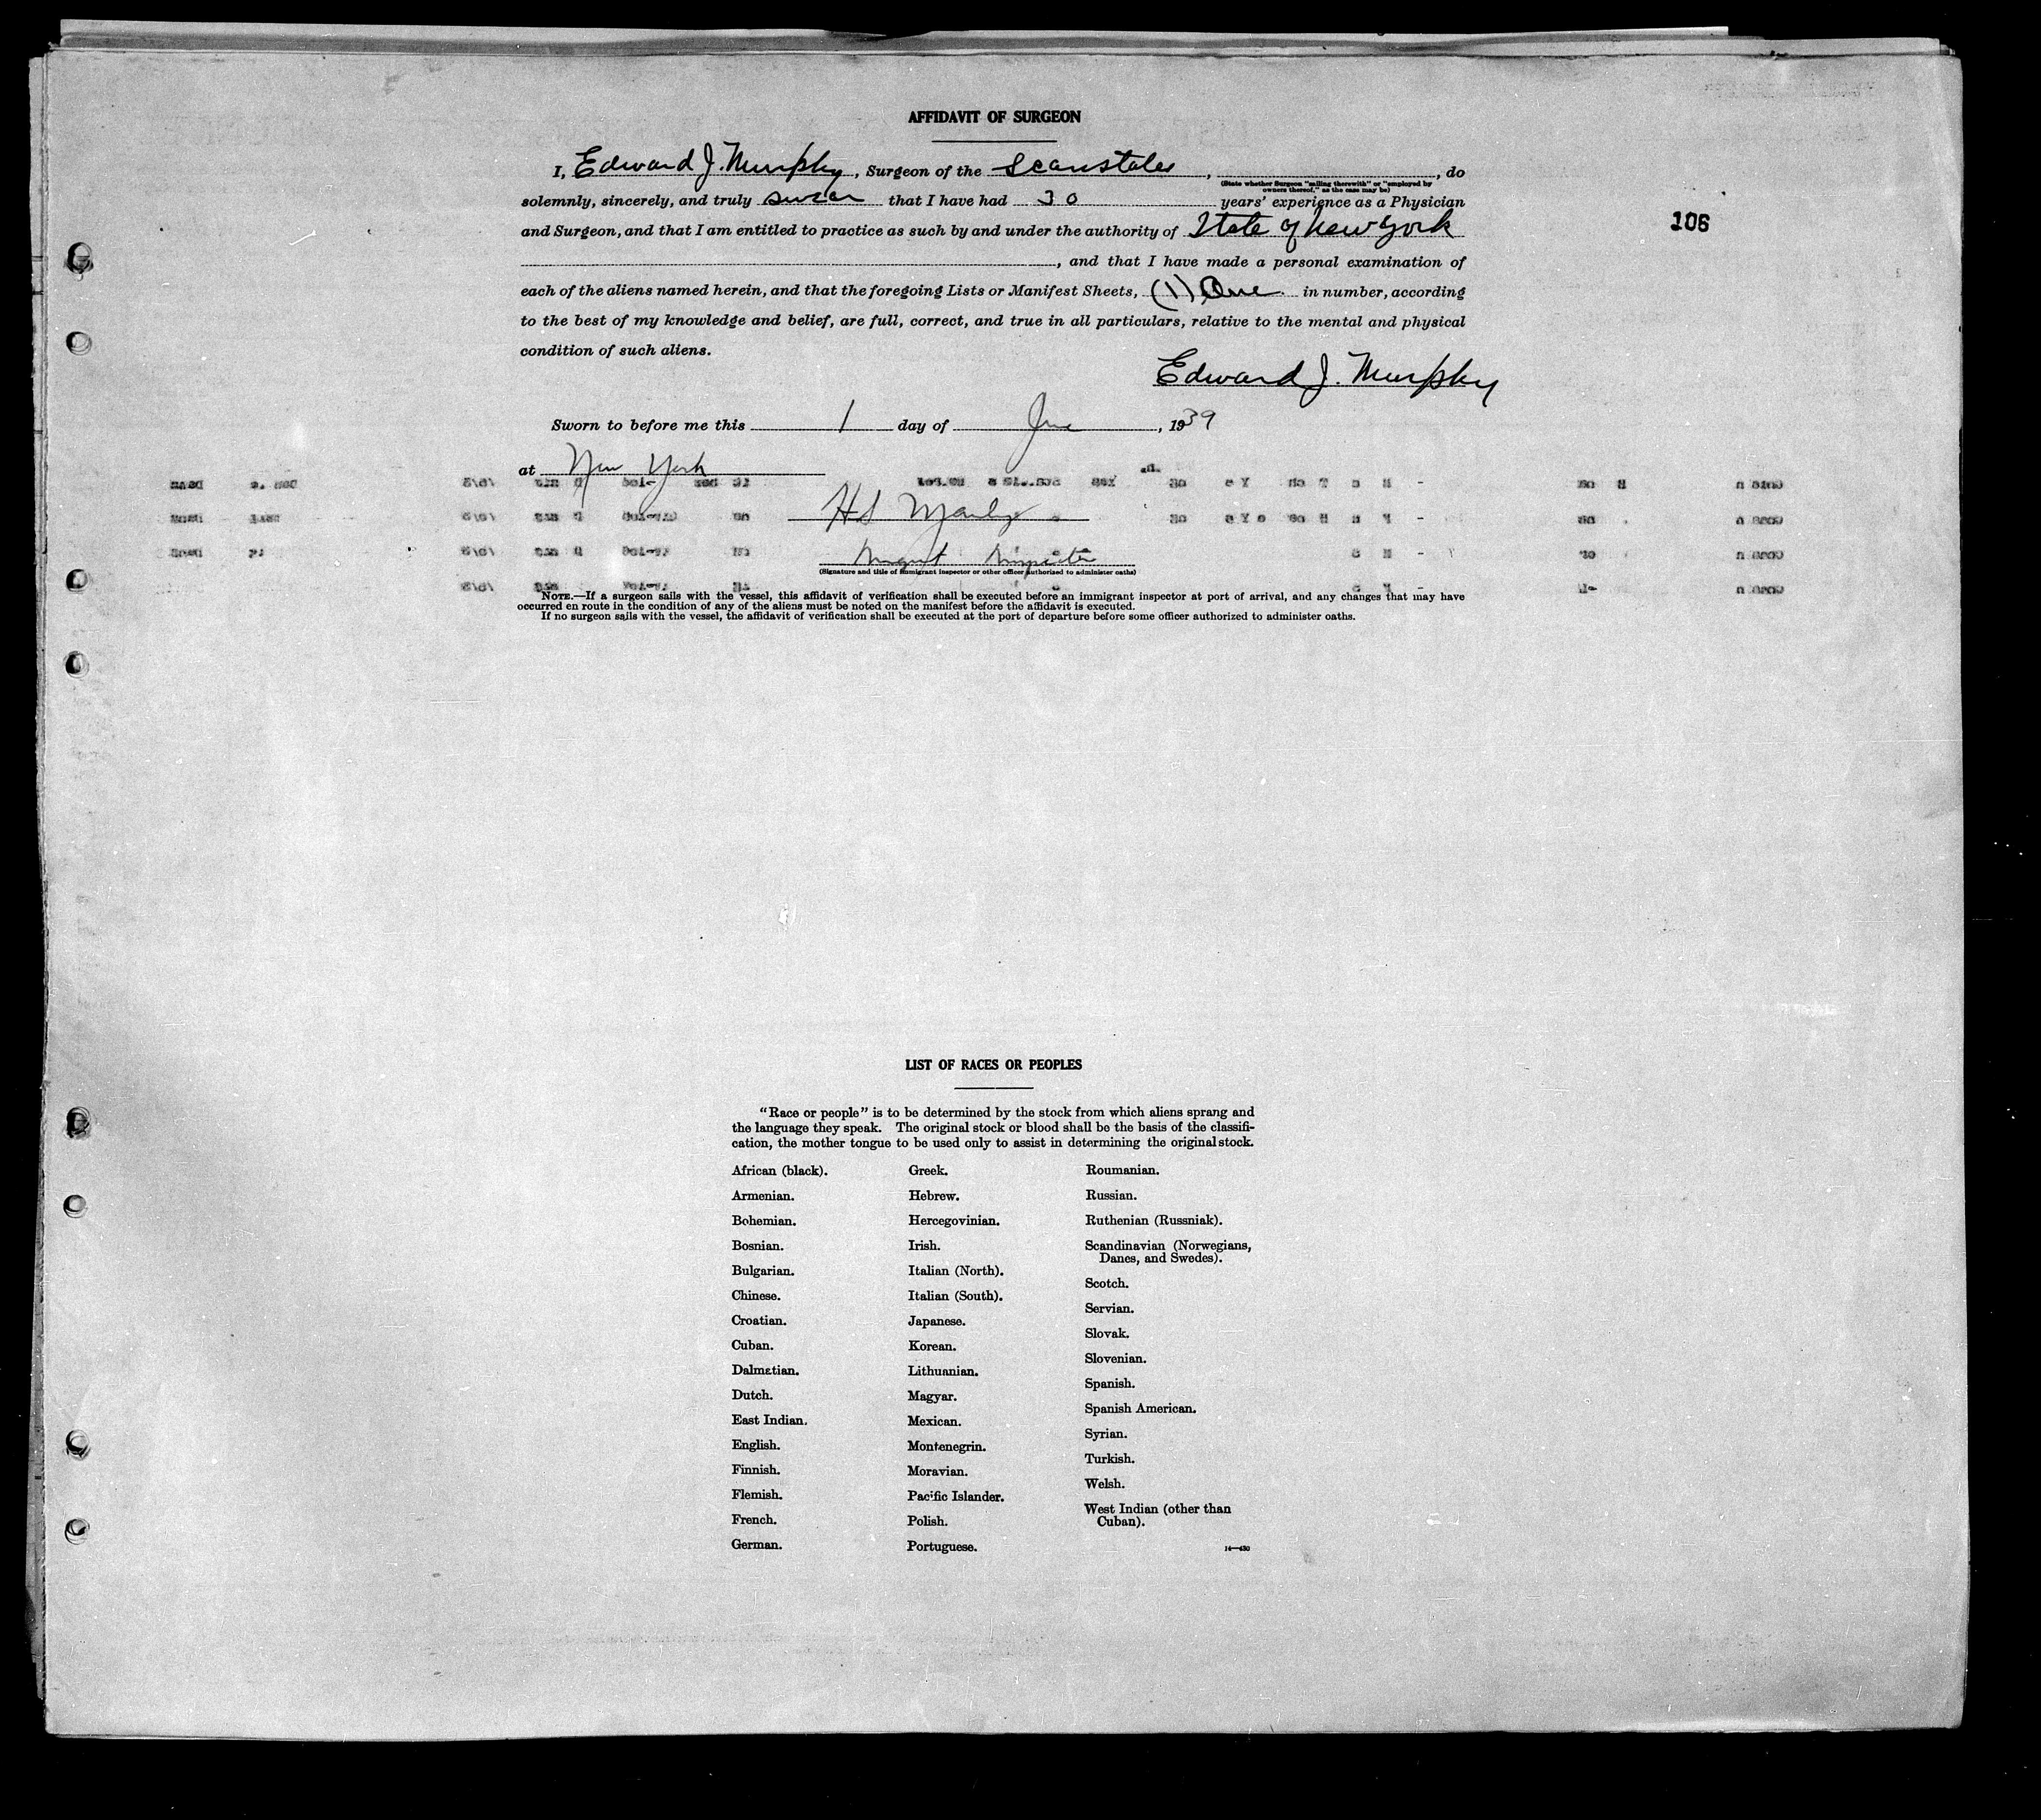 AFFIDAVIT OF SURGEON
I, Edward J. Murphy, Surgeon of the Scanstates, , do
(State whether Surgeon "sailing therewith" or "employed by owners thereof," as the case may be)
solemnly, sincerely, and truly swear that I have had 30 years' experience as a Physician
106
and Surgeon, and that I am entitled to practice as such by and under the authority of State of New York
, and that I have made a personal examination of
each of the aliens named herein, and that the foregoing Lists or Manifest Sheets, (1) One in number, according
to the best of my knowledge and belief, are full, correct, and true in all particulars, relative to the mental and physical
condition of such aliens.
Edward J. Murphy
Sworn to before me this 1 day of June, 1939
at New York
Inspector
(Signature and title of immigrant inspector or other officer authorized to administer oaths)
NOTE.—If a surgeon sails with the vessel, this affidavit of verification shall be executed before an immigrant inspector at port of arrival, and any changes that may have
occurred en route in the condition of any of the aliens must be noted on the manifest before the affidavit is executed.
If no surgeon sails with the vessel, the affidavit of verification shall be executed at the port of departure before some officer authorized to administer oaths.
LIST OF RACES OR PEOPLES
"Race or people" is to be determined by the stock from which aliens sprang and
the language they speak. The original stock or blood shall be the basis of the classifi-
cation, the mother tongue to be used only to assist in determining the original stock.
African (black).
Armenian.
Bohemian.
Bosnian.
Bulgarian.
Chinese.
Croatian.
Cuban.
Dalmatian.
Dutch.
East Indian.
English.
Finnish.
Flemish.
French.
German.
Greek.
Hebrew.
Hercegovinian.
Irish.
Italian (North).
Italian (South).
Japanese.
Korean.
Lithuanian.
Magyar.
Mexican.
Montenegrin.
Moravian.
Pacific Islander.
Polish.
Portuguese.
Roumanian.
Russian.
Ruthenian (Russniak).
Scandinavian (Norwegians,
Danes, and Swedes).
Scotch.
Servian.
Slovak.
Slovenian.
Spanish.
Spanish American.
Syrian.
Turkish.
Welsh.
West Indian (other than
Cuban).
14—430